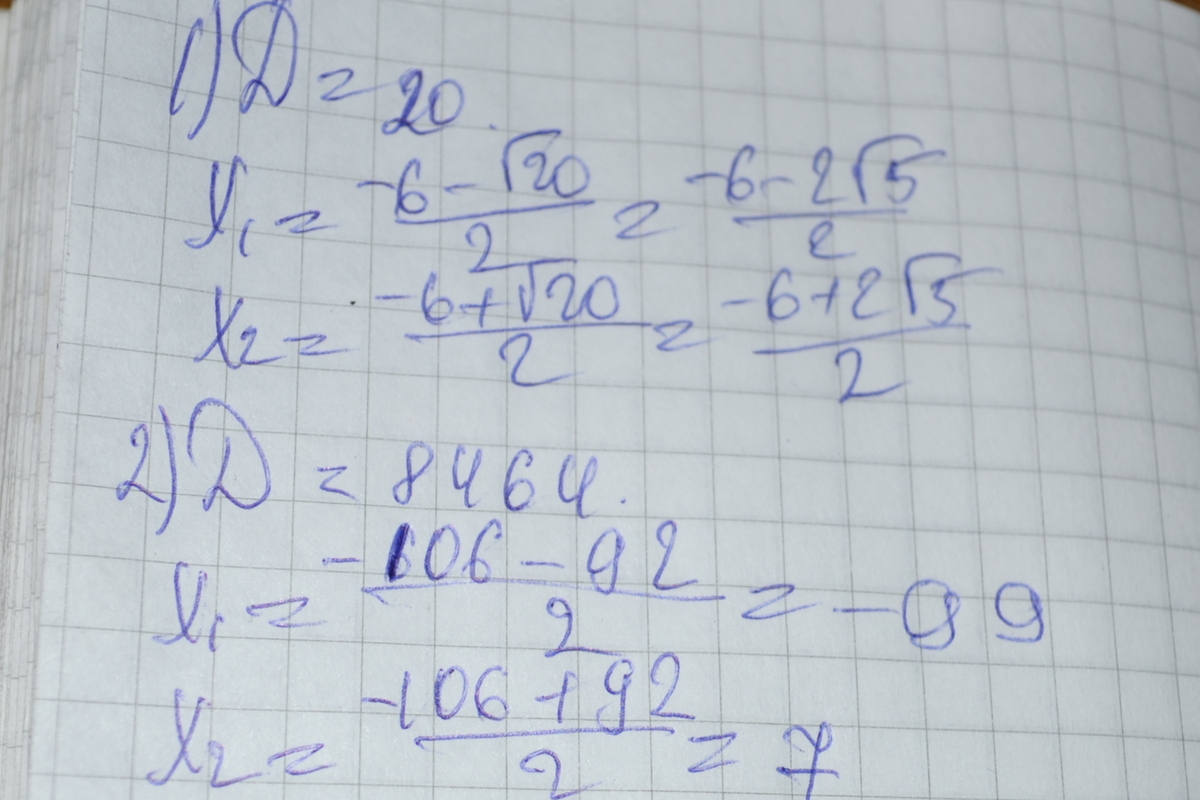 1) D = 20.
x₁ = (-6-√20)/2 = (-6-2√5)/2
x₂ = (-6+√20)/2 = (-6+2√5)/2
2) D = 8464.
x₁ = (-106-92)/2 = -99
x₂ = (-106+92)/2 = 7